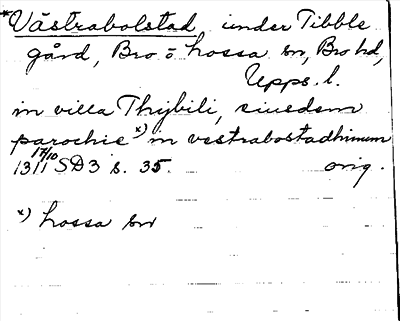 *Västrabolstad under Tibble
gård, Bro o Lossa sn, Bro hd,
Upps. l.
in villa Thybili, eiusdem
parochie x) in vestrabostadhinum
17/10
1311 SD 3 s. 35. orig.
x) Lossa sn